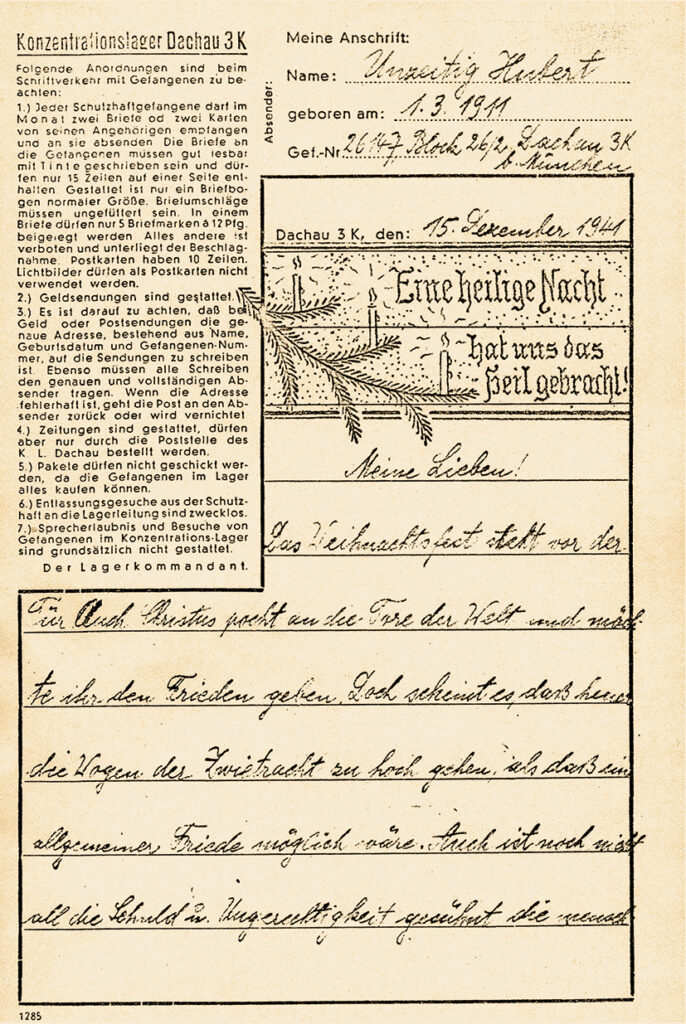 Konzentrationslager Dachau 3 K
Folgende Anordnungen sind beim
Schriftverkehr mit Gefangenen zu be-
achten:
1.) Jeder Schutzhaftgefangene darf im
Monat zwei Briefe od zwei Karten
von seinen Angehörigen empfangen
und an sie absenden Die Briefe an
die Gefangenen müssen gut lesbar
mit Tinte geschrieben sein und dür-
fen nur 15 Zeilen auf einer Seite ent-
halten. Gestattet ist nur ein Briefbo-
gen normaler Größe. Briefumschläge
müssen ungefüttert sein. In einem
Briefe dürfen nur 5 Briefmarken à 12 Pfg.
beigelegt werden Alles andere ist
verboten und unterliegt der Beschlag-
nahme. Postkarten haben 10 Zeilen.
Lichtbilder dürfen als Postkarten nicht
verwendet werden.
2.) Geldsendungen sind gestattet.
3.) Es ist darauf zu achten, daß bei
Geld oder Postsendungen die ge-
naue Adresse, bestehend aus Name,
Geburtsdatum und Gefangenen-Num-
mer, auf die Sendungen zu schreiben
ist. Ebenso müssen alle Schreiben
den genauen und vollständigen Ab-
sender tragen. Wenn die Adresse
fehlerhaft ist, geht die Post an den Ab-
sender zurück oder wird vernichtet
4.) Zeitungen sind gestattet, dürfen
aber nur durch die Poststelle des
K. L. Dachau bestellt werden.
5.) Pakete dürfen nicht geschickt wer-
den, da die Gefangenen im Lager
alles kaufen können.
6.) Entlassungsgesuche aus der Schutz-
haft an die Lagerleitung sind zwecklos.
7.) Sprecherlaubnis und Besuche von
Gefangenen im Konzentrations-Lager
sind grundsätzlich nicht gestattet.
Der Lagerkommandant.
Absender:
Meine Anschrift:
Name: Unzeitig Hubert
geboren am: 1. 3. 1911
Gef.-Nr. 26147, Block 26/2, Dachau 3K
b. München
Dachau 3 K, den: 15. Dezember 1941
Eine heilige Nacht
hat uns das
Heil gebracht!
Meine Lieben!
Das Weihnachtsfest steht vor der
Tür Auch Christus pocht an die Tore der Welt und möch-
te ihr den Frieden geben. Doch scheint es, daß heuer
die Wogen der Zwietracht zu hoch gehen, als daß ein
allgemeiner Friede möglich wäre. Auch ist noch nicht
all die Schuld u. Ungerechtigkeit gesühnt die mensch
1285